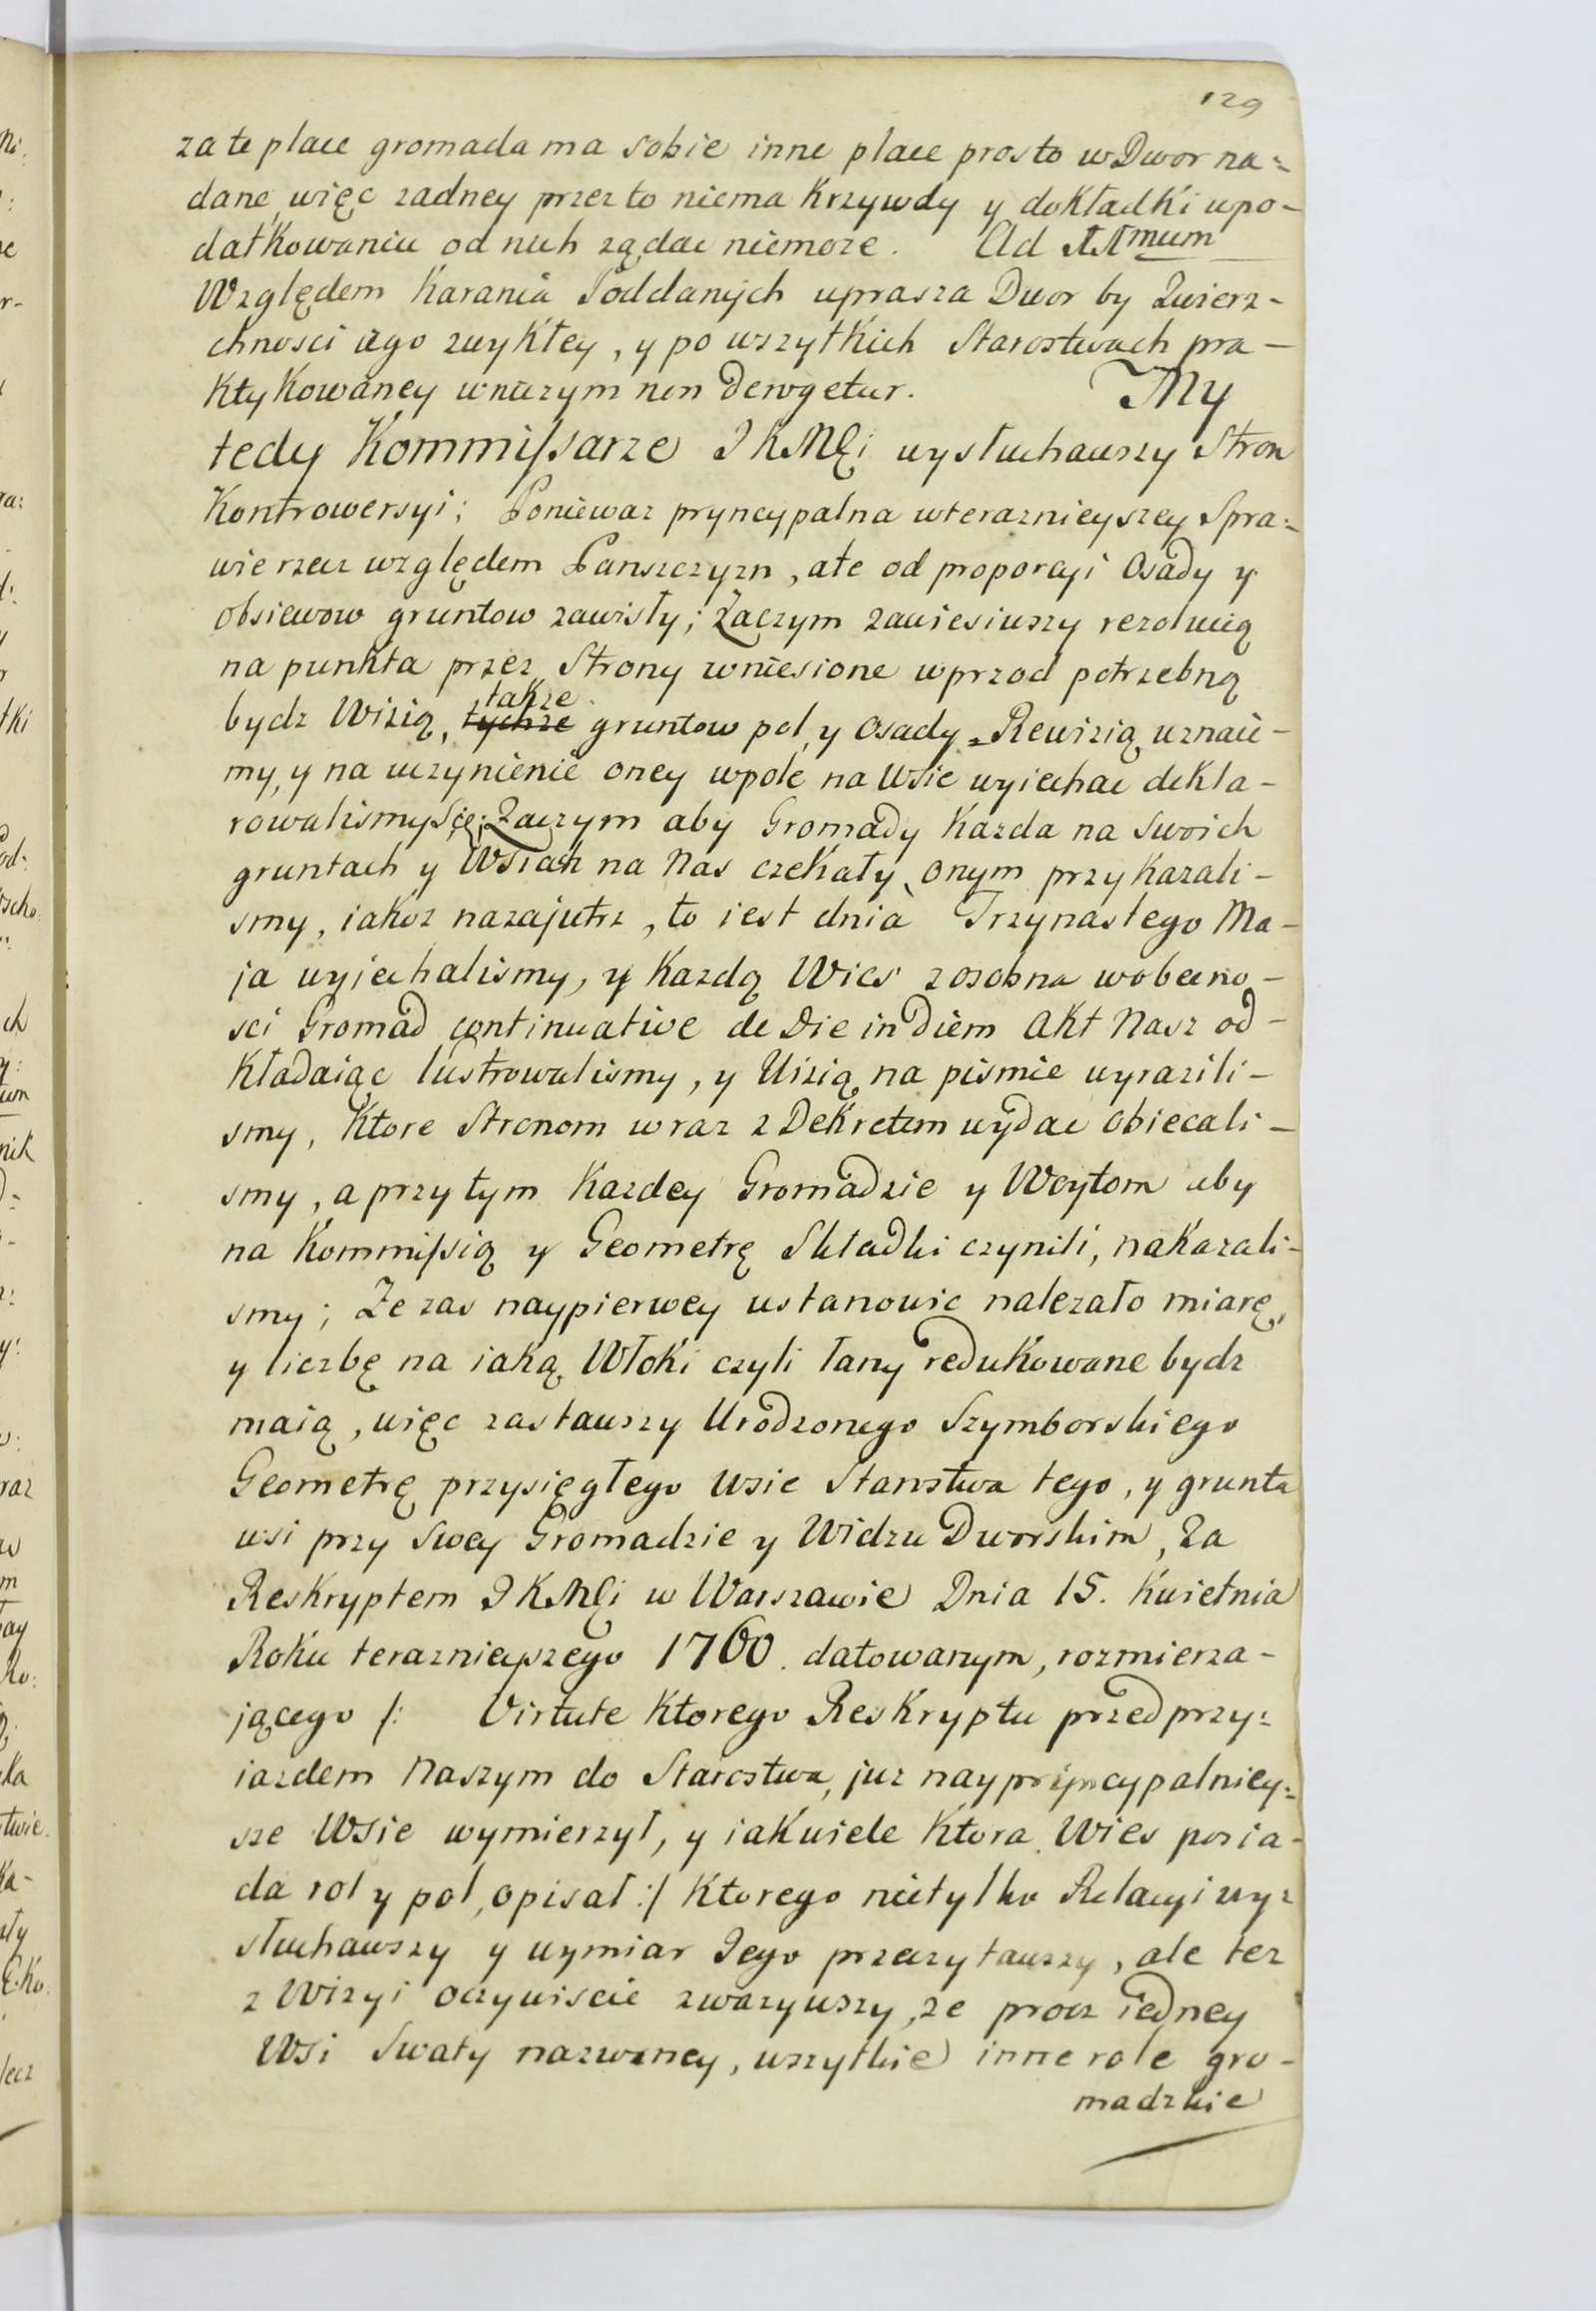 129
za te place gromada ma sobie inne place prosto w Dwor na=
dane, więc zadney przez to niema Krzywdy y dokładki w po-
datkowaniu od nich ządac niemoze. Ad
Względem Karania Poddanych uprasza Dwor by Zwierz-
chnosci iego zwykłey, y po wszytkich Starostwach pra-
ktykowaney wniczym non derogetur. My
tedy Kommissarze JKMCi wysłuchawszy Stron
Kontrowersyi; Poniewaz pryncypalna w terazniejszey Spra=
wie rzecz względem Panszczyzn, ale od proporcyi Osady y
obsiewow gruntow zawisły; Zaczym zawiesiwszy rezolucią
na punkta przez Strony wniesione wprzod potrzebną
bydz Wizią, takze gruntow pol y Osady = Rewizią uznaie-
my, y na uczynienie oney w pole na Wsie wyiechac dekla-
rowalismy Się; Zaczym aby Gromady Kazda na Swoich
gruntach y Wsiach na Nas czekały, onym przykazali-
smy, iakoz nazajutrz, to iest dnia Trzynastego Ma-
ja wyjechalismy, y Kazdą Wies zosobna w obecno-
sci Gromad continuative de Die in Diem Akt Nasz od-
kładaiąc lustrowalismy, y Wizią na pismie wyrazili-
smy, Ktore Stronom wraz z Dekretem wydac obiecali-
smy, a przytym Kazdey Gromadzie y Woytom aby
na Kommissią y Geometrę Składki czynili, nakazali-
smy; Ze zas naypierwey ustanowic nalezało miarę,
y liczbę na iaką Włoki czyli łany redukowane bydz
maią, więc zastawszy Urodzonego Szymborskiego
Geometrę przysięgłego Wsie Starostwa tego, y grunta
wsi przy Swey Gromadzie y Widzu Dworskim, Za
Reskryptem JKMCi w Warszawie Dnia 15. Kwietnia
Roku terazniejszego 1760. datowanym, rozmierza-
jącego /: Virtute Ktorego Reskryptu przed przy=
iazdem Naszym do Starostwa, juz naypryncypalniey=
sze Wsie wymierzył, y iak wiele Ktora Wies posia-
da rol y pol, opisał :/ Ktorego nietylko Relacyi wy=
słuchawszy y wymiar Jego przeczytawszy, ale tez
z Wizyi oczywiscie zwazywszy, ze procz iedney
Wsi Swaty nazwaney, wszytkie inne role gro-
madzkie